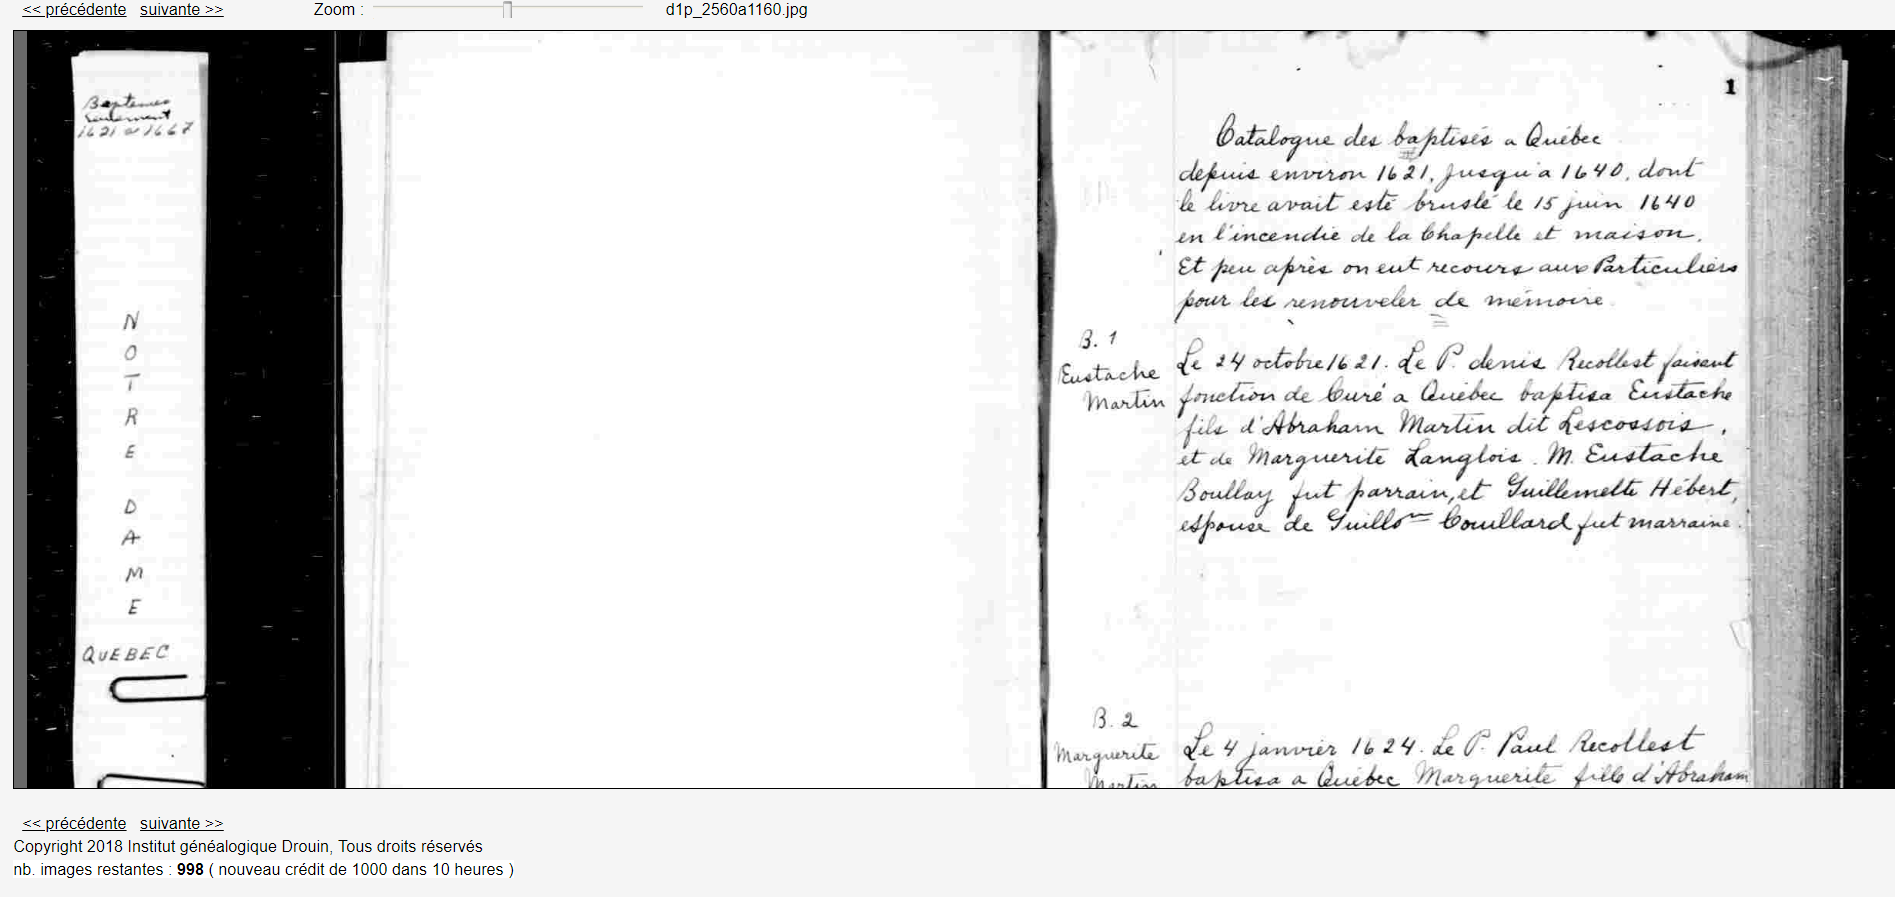 << précédente suivante >> Zoom : d1p_2560a1160.jpg
Baptemes
seulement
1621 a 1667
N
O
T
R
E
D
A
M
E
QUEBEC
1
Catalogue des baptisés a Québec
depuis environ 1621, jusqu'a 1640, dont
le livre avait esté bruslé le 15 juin 1640
en l'incendie de la Chapelle et maison.
Et peu après on eut recours aux Particuliers
pour les renouveler de mémoire
B. 1
Eustache
Martin
Le 24 octobre 1621. Le P. denis Recollest faisant
fonction de Curé a Québec baptisa Eustache
fils d'Abraham Martin dit Lescossois,
et de Marguerite Langlois. M. Eustache
Boullay fut parrain, et Guillemette Hébert,
espouse de Guillome Couillard fut marraine.
B. 2
Marguerite
Martin
Le 4 janvier 1624. Le P. Paul Recollest
baptisa a Québec Marguerite fille d'Abraham
<< précédente suivante >>
Copyright 2018 Institut généalogique Drouin, Tous droits réservés
nb. images restantes : 998 ( nouveau crédit de 1000 dans 10 heures )